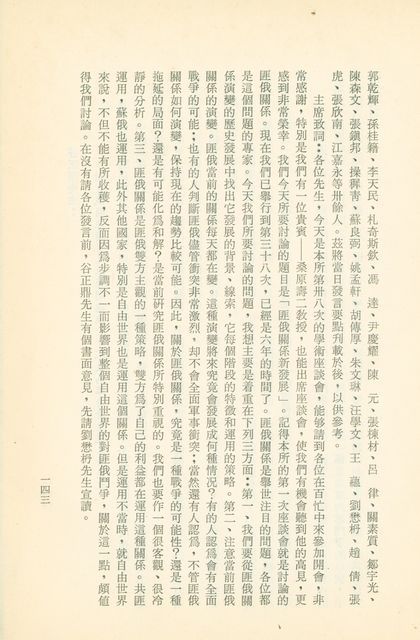 郭乾輝、孫桂籍、李天民、札奇斯欽、馮　達、尹慶耀、陳　元、張棟材、呂　律、關素質、鄒宇光、
陳森文、張鎮邦、操穉靑、蘇良弼、姚孟軒、胡傳厚、朱文琳、汪學文、王　蘊、劉懋枬、趙　倩、張
虎、張欣南、江嘉永等卅餘人。茲將當日發言要點刊載於後，以供參考。
主席致詞：各位先生，今天是本所第卅八次的學術座談會，能够請到各位在百忙中來參加開會，非
常感謝，特別是我們有一位貴賓——桑原壽二敎授，也能出席座談會，使我們有機會聽到他的高見，更
感到非常榮幸。我們今天所要討論的題目是「匪俄關係新發展」。記得本所的第一次座談會就是討論的
匪俄關係。現在我們已舉行到第三十八次，已經是六年的時間了。匪俄關係是舉世注目的問題，各位都
是這個問題的專家。今天我們所要討論的問題，我想主要是着重在下列三方面：第一、我們要從匪俄關
係演變的歷史發展中找出它發展的背景、線索，它每個階段的特徵和運用的策略。第二、注意當前匪俄
關係的演變。匪俄當前的關係每天都在變。這種演變將來究竟會發展成何種情況？有的人認爲會有全面
戰爭的可能；也有的人判斷匪俄儘管衝突非常激烈，却不會全面軍事衝突；當然還有人認爲，不管匪俄
關係如何演變，保持現在的趨勢比較可能。因此，關於匪俄關係，究竟是一種戰爭的可能性？還是一種
拖延的局面？還是有可能化爲和解？是當前硏究匪俄關係所特別重視的。我們也要作一個很客觀、很冷
靜的分析。第三、匪俄關係是匪俄雙方主觀的一種策略，雙方爲了自己的利益都在運用這種關係。共匪
運用，蘇俄也運用，此外其他國家，特別是自由世界也是運用這個關係。但是運用不當時，就自由世界
來說，不但不能有所收穫，反而因爲步調不一而影響到整個自由世界的對匪俄鬥爭，關於這一點，頗値
得我們討論。在沒有請各位發言前，谷正鼎先生有個書面意見，先請劉懋枬先生宣讀。
一四三